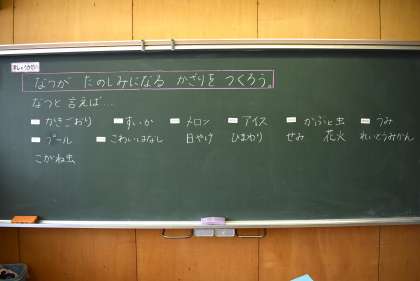 なつが たのしみになる かざりを つくろう。
なつと 言えば…
かきごおり すいか メロン アイス かぶと虫 うみ
プール こわいはなし 日やけ ひまわり せみ 花火 れいとうみかん
こがね虫